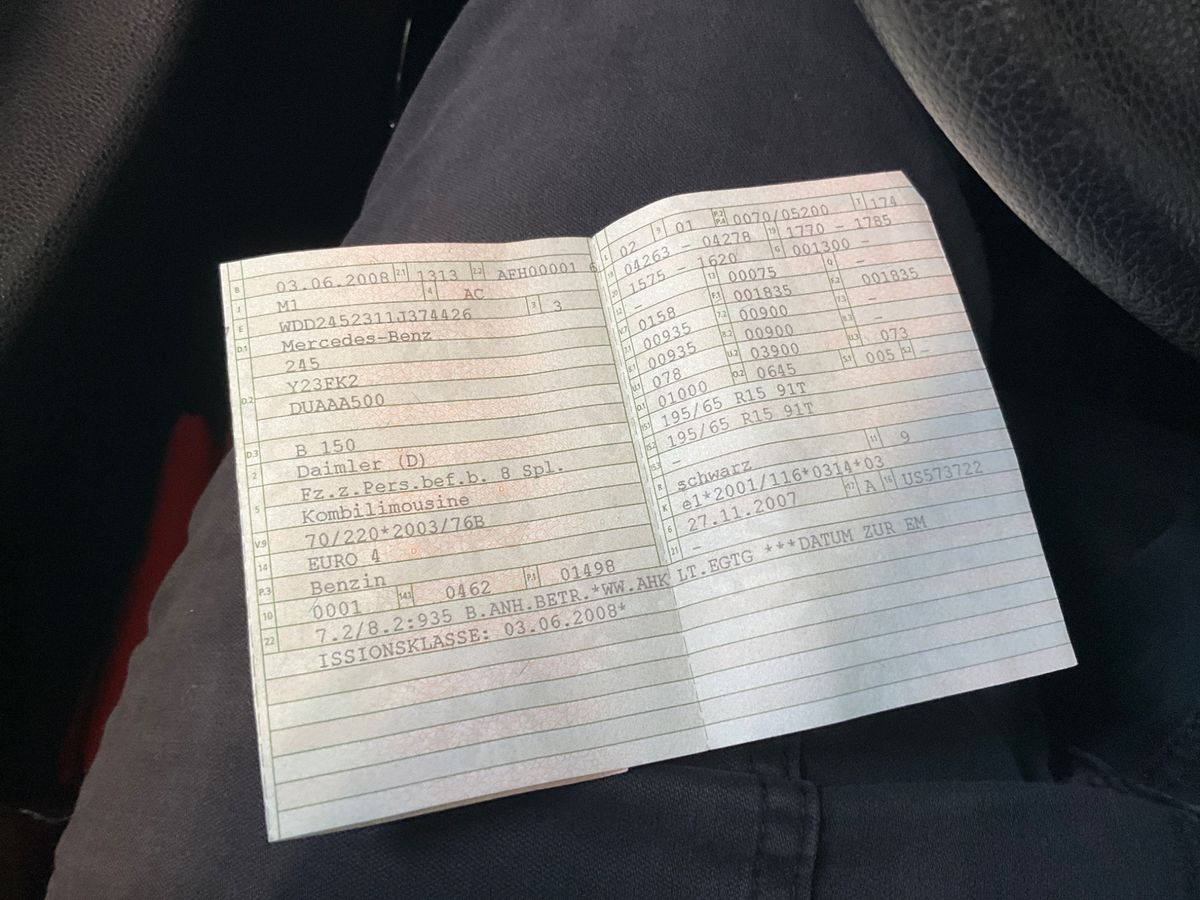 B 03.06.2008 2.1 1313 2.2 AEH00001 6
J M1 4 AC
E WDD2452311J374426 3 3
D.1 Mercedes-Benz
245
D.2 Y23FK2
DUAAA500
D.3 B 150
2 Daimler (D)
5 Fz.z.Pers.bef.b. 8 Spl.
Kombilimousine
V.9 70/220*2003/76B
14 EURO 4
P.3 Benzin
10 0001 14.1 0462 P.1 01498
22 7.2/8.2:935 B.ANH.BETR.*WW.AHK
ISSIONSKLASSE: 03.06.2008*
L 02 9 01 P.2 P.4 0070/05200 T 174
18 04263 - 04278 19 1770 - 1785
20 1575 - 1620 G 001300 -
12 - 13 00075 Q -
V.7 0158 F.1 001835 F.2 001835
7.1 00935 7.2 00900 7.3 -
8.1 00935 8.2 00900 8.3 -
U.1 078 U.2 03900 U.3 073
O.1 01000 O.2 0645 S.1 005 S.2 -
15.1 195/65 R15 91T
15.2 195/65 R15 91T
15.3 -
R schwarz 11 9
K e1*2001/116*0314*03
6 27.11.2007 17 A 16 US573722
21 -
LT.EGTG ***DATUM ZUR EM